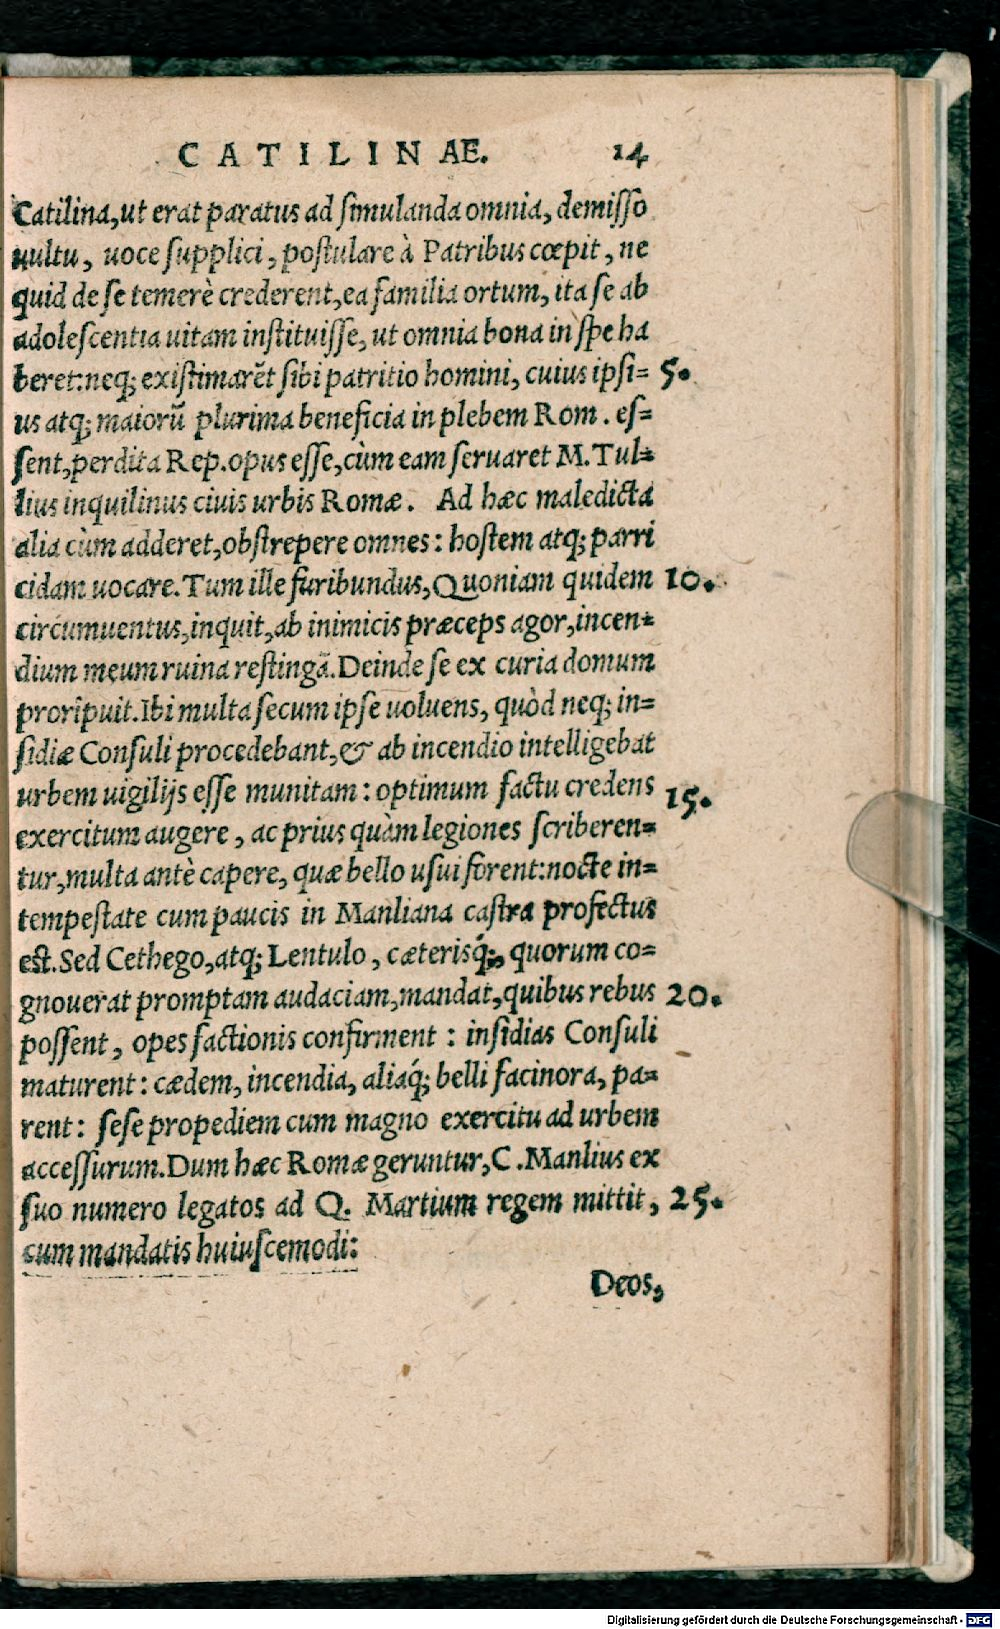 CATILINAE. 14
Catilina, ut erat paratus ad simulanda omnia, demisso
uultu, uoce supplici, postulare à Patribus cœpit, ne
quid de se temerè crederent, ea familia ortum, ita se ab
adolescentia uitam instituisse, ut omnia bona in spe ha
beret: neq; existimarẽt sibi patritio homini, cuius ipsi= 5.
us atq; maiorũ plurima beneficia in plebem Rom. es=
sent, perdita Rep. opus esse, cùm eam seruaret M. Tul=
lius inquilinus ciuis urbis Romæ. Ad hæc maledicta
alia cùm adderet, obstrepere omnes: hostem atq; parri
cidam uocare. Tum ille furibundus, Quoniam quidem 10.
circumuentus, inquit, ab inimicis præceps agor, incen=
dium meum ruina restingã. Deinde se ex curia domum
proripuit. Ibi multa secum ipse uoluens, quòd neq; in=
sidiæ Consuli procedebant, & ab incendio intelligebat
urbem uigilijs esse munitam: optimum factu credens 15.
exercitum augere, ac prius quàm legiones scriberen=
tur, multa antè capere, quæ bello usui forent: nocte in=
tempestate cum paucis in Manliana castra profectus
est. Sed Cethego, atq; Lentulo, cæterisq́;, quorum co=
gnouerat promptam audaciam, mandat, quibus rebus 20.
possent, opes factionis confirment: insidias Consuli
maturent: cædem, incendia, aliaq́; belli facinora, pa=
rent: sese propediem cum magno exercitu ad urbem
accessurum. Dum hæc Romæ geruntur, C. Manlius ex
suo numero legatos ad Q. Martium regem mittit, 25.
cum mandatis huiuscemodi:
Deos,
Digitalisierung gefördert durch die Deutsche Forschungsgemeinschaft - DFG